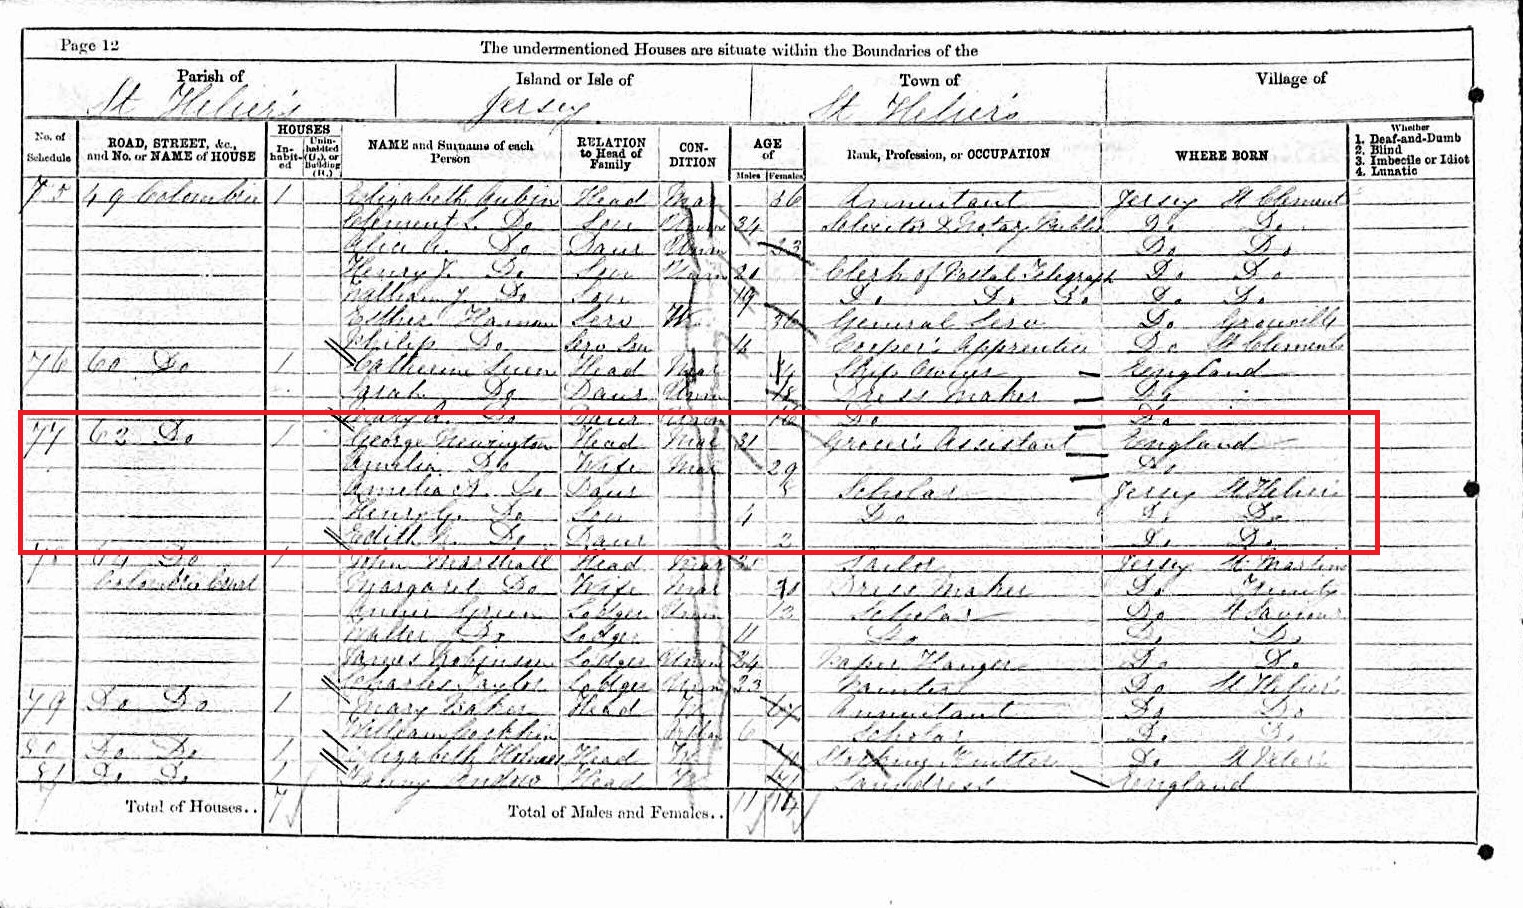 Page 12
The undermentioned Houses are situate within the Boundaries of the
Parish of Island or Isle of Town of Village of
St Helier's Jersey St Helier's
No. of Schedule ROAD, STREET, &c., and No. or NAME of HOUSE HOUSES Inhabited Uninhabited (U.), or Building (B.) NAME and Surname of each Person RELATION to Head of Family CONDITION AGE of Males Females Rank, Profession, or OCCUPATION WHERE BORN Whether 1. Deaf-and-Dumb 2. Blind 3. Imbecile or Idiot 4. Lunatic
75 49 1 Elizabeth Aubin Head 56 Annuitant Jersey St Clement
Clement Do Son Unm 34 Solicitor & Notary Public Do Do
Alice A. Do Daur Unm 23 Do Do
Henry J. Do Son Unm 20 Clerk of Postal Telegraph Do Do
William J. Do Son 19 Do Do Do Do Do
Esther Hamon Serv W 36 General Serv Do Grouville
Philip Do Serv Son Cooper's Apprentice Do St Clements
76 60 Do 1 Catherine Head Mar Ship England
Sarah Do Daur Unm 18 Dress Maker Do
Mary A. Do Daur Unm 16 Do Do
77 62 Do 1 George Newington Head Mar 31 Grocer's Assistant England
Amelia Do Wife Mar 29 Do
Amelia A. Do Daur 5 Scholar Jersey St Helier's
Henry G. Do Son 4 Do Do Do
Edith Do Daur 2 Do Do
78 64 Do 1 Wm Marshall Head Mar Jersey St Martin
Margaret Do Wife Mar Dress Maker Do Trinity
Green Lodger Unm 13 Scholar Do St Saviour
Walter Do Lodger 11 Do Do Do
James Robinson Lodger Unm 24 Paper Hanger Do Do
Charles Taylor Lodger Unm 23 Painter Do St Helier's
79 Do Do 1 Mary Baker Head W Annuitant Do Do
William 6 Scholar Do Do
80 Do Do 1 Elizabeth Head W Stocking Knitter Do St Peter's
81 Do Do 1 Fanny Head W 71 Laundress England
Total of Houses.. 7 Total of Males and Females.. 11 14